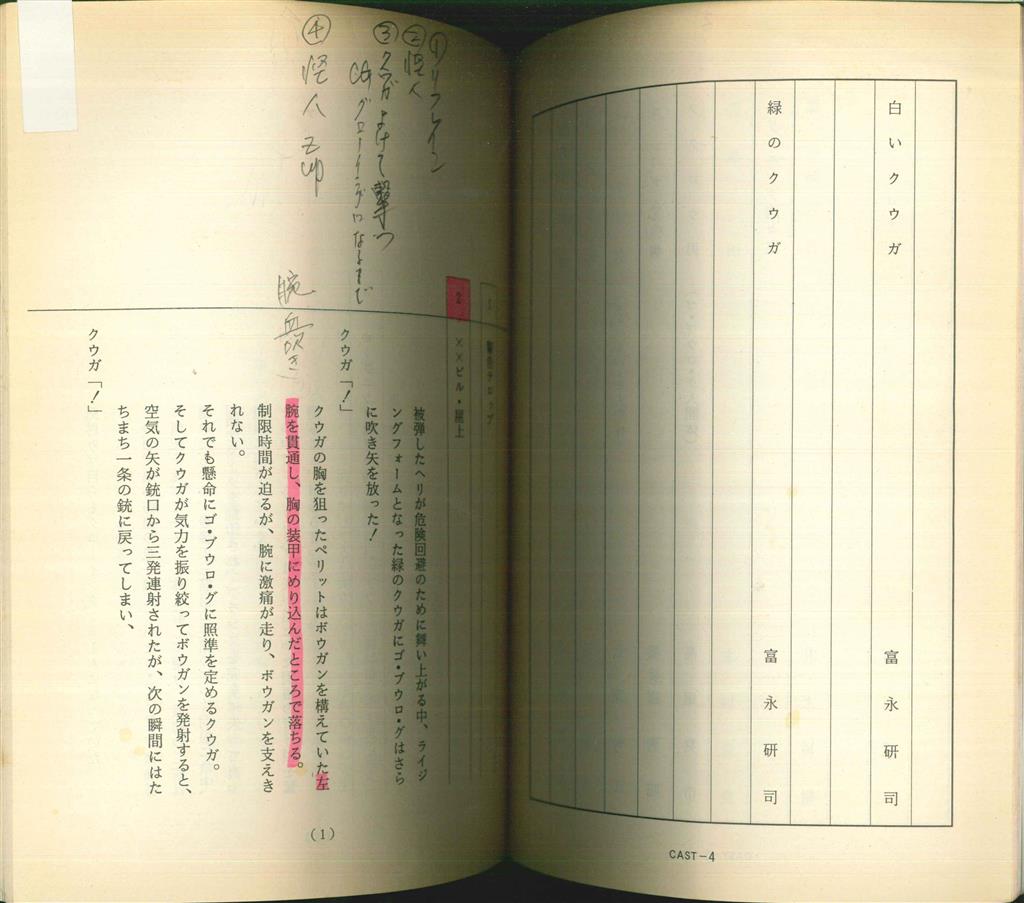 白いクウガ　富永研司
緑のクウガ　富永研司
CAST-4
①リフレイン
②怪人
③クウガ よけて撃つ
CG グローイングになるまで
④怪人
腕
血吹き
1　警告テロップ
2　××ビル・屋上
被弾したヘリが危険回避のために舞い上がる中、ライジ
ングフォームとなった緑のクウガにゴ・ブウロ・グはさら
に吹き矢を放った！
クウガ「！」
クウガの胸を狙ったペリットはボウガンを構えていた左
腕を貫通し、胸の装甲にめり込んだところで落ちる。
制限時間が迫るが、腕に激痛が走り、ボウガンを支えき
れない。
それでも懸命にゴ・ブウロ・グに照準を定めるクウガ。
そしてクウガが気力を振り絞ってボウガンを発射すると、
空気の矢が銃口から三発連射されたが、次の瞬間にはた
ちまち一条の銃に戻ってしまい、
クウガ「！」
（1）